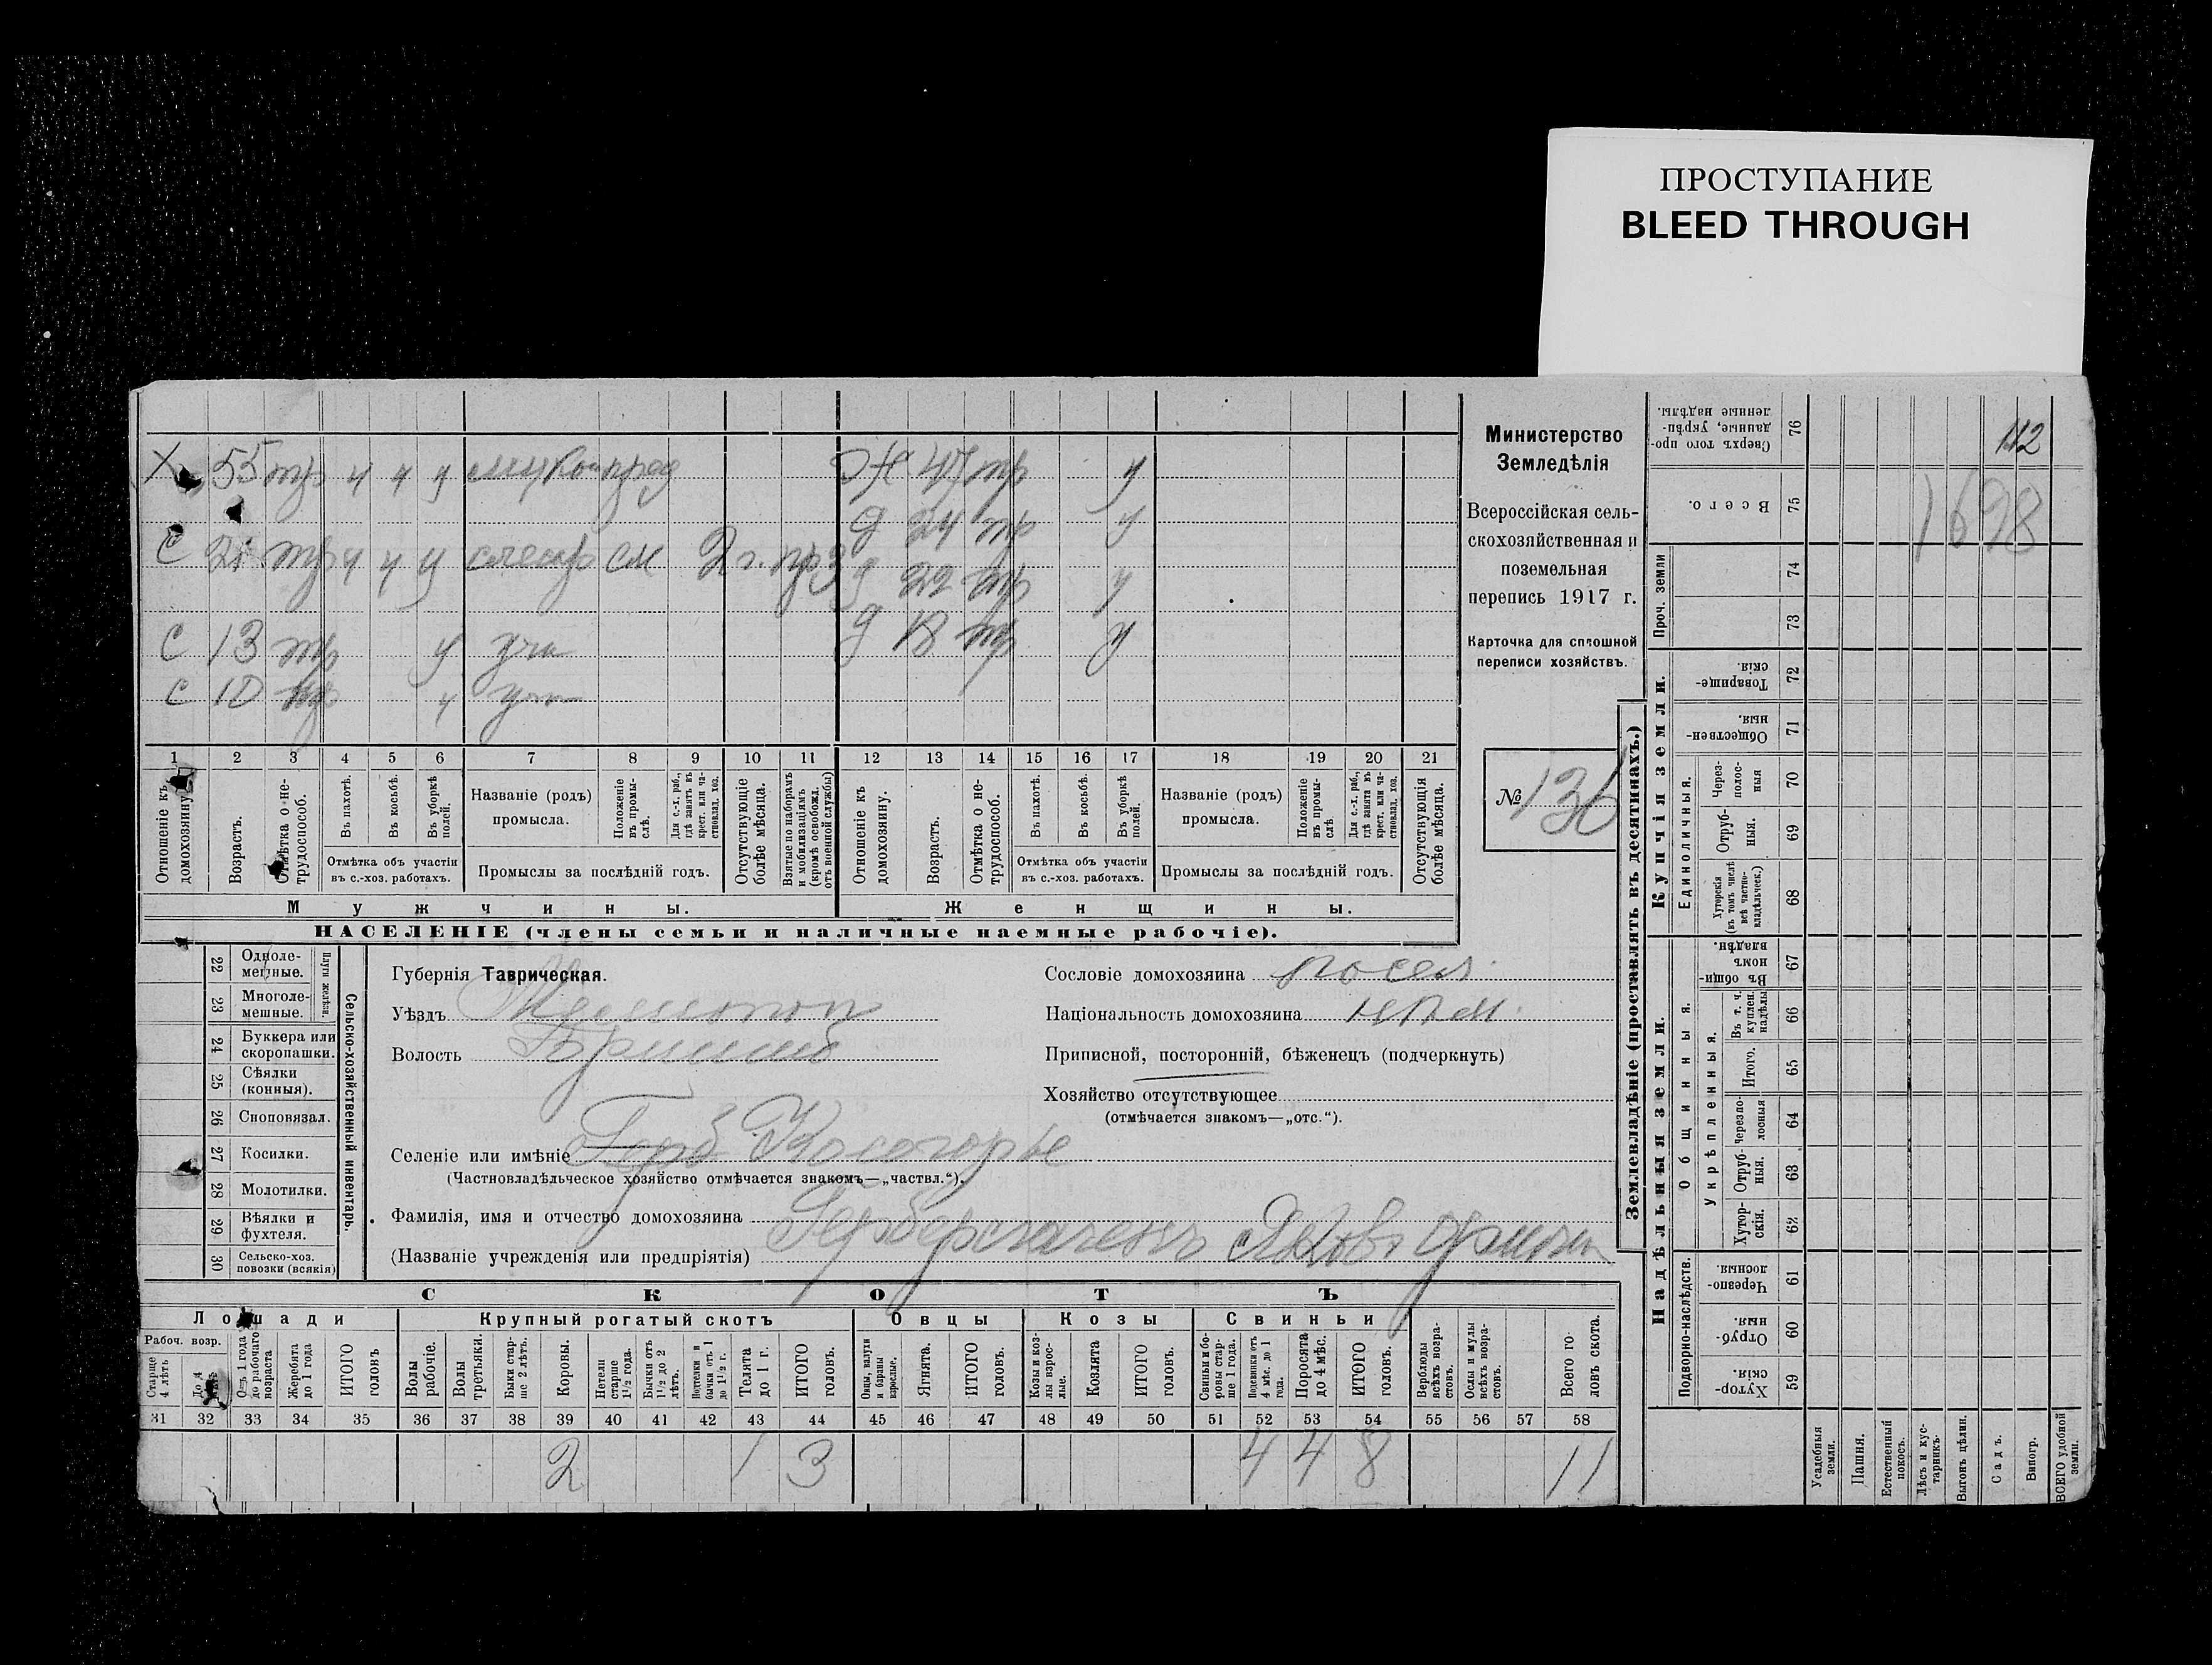 ПРОСТУПАНИЕ
BLEED THROUGH
Х 55 тр ч ч у
Ж 47 тр у
д 24 тр у
С 21 тр ч ч у слесар см 2 г.
д 22 тр у
С 13 тр у
д 18 тр у
С 10 тр
1 2 3 4 5 6 7 8 9 10 11 12 13 14 15 16 17 18 19 20 21
Отношеніе къ домохозяину.
Возрастъ.
Отмѣтка о не-трудоспособ.
Въ пахотѣ.
Въ косьбѣ.
Въ уборкѣ полей.
Отмѣтка объ участіи въ с.-хоз. работахъ.
Названіе (родъ) промысла.
Положеніе въ промы-слѣ.
Для с.-х. раб., гдѣ занятъ въ крест. или ча-стновлад. хоз.
Промыслы за послѣдній годъ.
Отсутствующіе болѣе мѣсяца.
Взятые по наборамъ и мобилизаціямъ (кромѣ освобожд. отъ военной службы)
Отношеніе къ домохозяину.
Возрастъ.
Отмѣтка о не-трудоспособ.
Въ пахотѣ.
Въ косьбѣ.
Въ уборкѣ полей.
Отмѣтка объ участіи въ с.-хоз. работахъ.
Названіе (родъ) промысла.
Положеніе въ промы-слѣ
Для с.-х. раб., гдѣ занята въ крест. или ча-стновлад. хоз.
Промыслы за послѣдній годъ.
Отсутствующія болѣе мѣсяца.
Мужчины.
Женщины.
НАСЕЛЕНІЕ (члены семьи и наличные наемные рабочіе).
Министерство
Земледѣлія
Всероссійская сель-
скохозяйственная и
поземельная
перепись 1917 г.
Карточка для сплошной
переписи хозяйствъ.
№ 136
22 Одноле-мешные.
23 Многоле-мешные.
Плуги желѣзн.
24 Буккера или скоропашки.
25 Сѣялки (конныя).
26 Сноповязал.
27 Косилки.
28 Молотилки.
29 Вѣялки и фухтеля.
30 Сельско-хоз. повозки (всякія)
Сельско-хозяйственный инвентарь.
Губернія Таврическая.
Уѣздъ
Волость
Сословіе домохозяина посел.
Національность домохозяина нѣм.
Приписной, посторонній, бѣженецъ (подчеркнуть)
Хозяйство отсутствующее
(отмѣчается знакомъ—„отс.“).
Селеніе или имѣніе Косогорье
(Частновладѣльческое хозяйство отмѣчается знакомъ—„частвл.“).
Фамилія, имя и отчество домохозяина
(Названіе учрежденія или предпріятія) Яковъ
СКОТЪ
Лошади
Рабоч. возр.
Старше 4 лѣтъ
До 4 лѣтъ
Отъ 1 года до рабочаго возраста
Жеребята до 1 года
ИТОГО головъ
Крупный рогатый скотъ
Волы рабочіе.
Волы третьяки.
Быки стар-ше 2 лѣтъ.
Коровы.
Нетели старше 1½ года.
Бычки отъ 1½ до 2 лѣтъ.
Подтелки и бычки отъ 1 до 1½ г.
Телята до 1 г.
ИТОГО головъ.
Овцы
Овцы, валухи и бараны взрослые.
Ягнята.
ИТОГО головъ.
Козы
Козы и коз-лы взрос-лые.
Козлята
ИТОГО головъ.
Свиньи
Свиньи и бо-ровы стар-ше 1 года.
Подсвинки отъ 4 мѣс. до 1 года.
Поросята до 4 мѣс.
ИТОГО головъ.
Верблюды всѣхъ возра-стовъ.
Ослы и мулы всѣхъ возра-стовъ.
Всего го-ловъ скота.
31 32 33 34 35 36 37 38 39 40 41 42 43 44 45 46 47 48 49 50 51 52 53 54 55 56 57 58
2 1 3 4 4 8 11
Землевладѣніе (проставлять въ десятинахъ.)
Надѣльныя земли.
Купчія земли.
Проч. земли
Подворно-наслѣдств.
Общинныя.
Укрѣпленныя.
Единоличныя.
Сверхъ того про-данные, укрѣп-ленные надѣлы. 76
Всего. 75
74
73
Товарище-скія. 72
Обществен-ныя. 71
Через-полос-ныя 70
Отруб-ныя. 69
Хуторскія (въ томъ числѣ всѣ частно-владѣльческ.) 68
Въ общин-номъ владѣн. 67
Въ т. ч. куплен. надѣлы 66
Итого. 65
Черезпо-лосныя 64
Отруб-ныя. 63
Хутор-скія. 62
Черезпо-лосныя. 61
Отруб-ныя. 60
Хутор-скія. 59
112
1698
Усадебныя земли.
Пашня.
Естественный покосъ.
Лѣсъ и кус-тарникъ.
Выгонъ цѣлин.
Садъ.
Виногр.
ВСЕГО удобной земли.